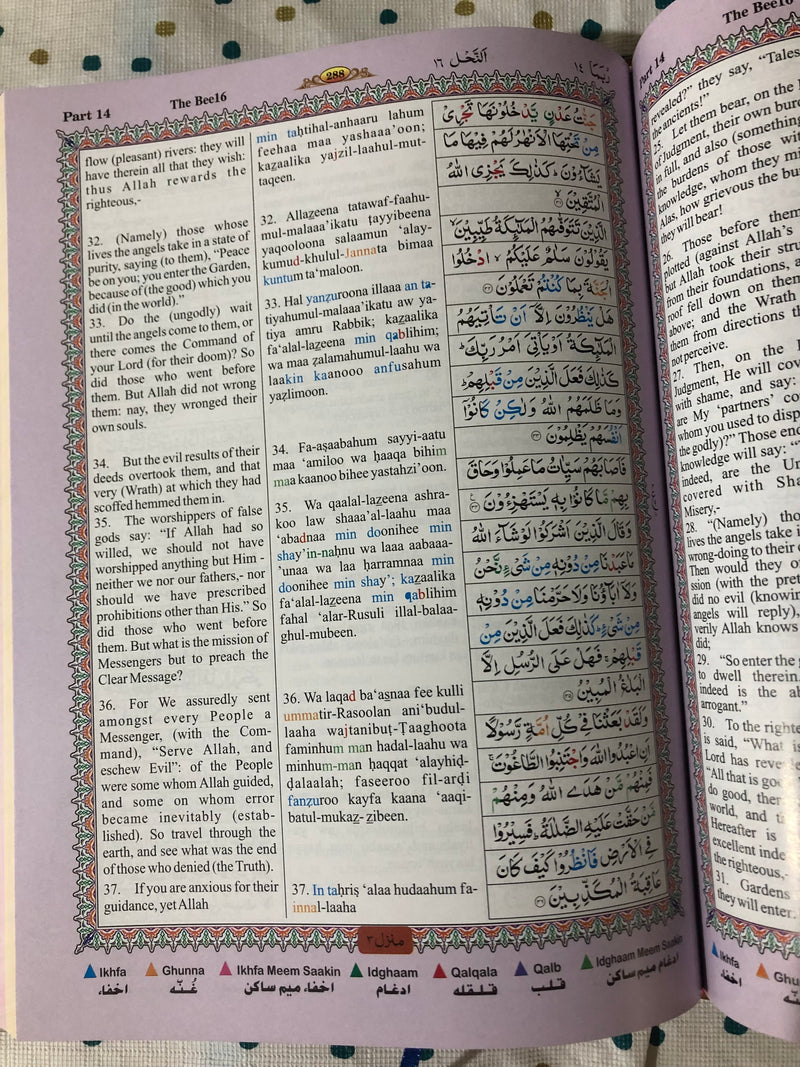 Part 14
The Bee16
288
اَلنَّحْل ١٦
رُبَمَا ١٤
flow (pleasant) rivers: they will
have therein all that they wish:
thus Allah rewards the
righteous,-
32. (Namely) those whose
lives the angels take in a state of
purity, saying (to them), “Peace
be on you; you enter the Garden,
because of (the good) which you
did (in the world).”
33. Do the (ungodly) wait
until the angels come to them, or
there comes the Command of
your Lord (for their doom)? So
did those who went before
them. But Allah did not wrong
them: nay, they wronged their
own souls.
34. But the evil results of their
deeds overtook them, and that
very (Wrath) at which they had
scoffed hemmed them in.
35. The worshippers of false
gods say: “If Allah had so
willed, we should not have
worshipped anything but Him -
neither we nor our fathers,- nor
should we have prescribed
prohibitions other than His.” So
did those who went before
them. But what is the mission of
Messengers but to preach the
Clear Message?
36. For We assuredly sent
amongst every People a
Messenger, (with the Com-
mand), “Serve Allah, and
eschew Evil”: of the People
were some whom Allah guided,
and some on whom error
became inevitably (estab-
lished). So travel through the
earth, and see what was the end
of those who denied (the Truth).
37. If you are anxious for their
guidance, yet Allah
min taḥtihal-anhaaru lahum
feehaa maa yashaaa’oon;
kaẕaalika yajzil-laahul-mut-
taqeen.
32. Allaẕeena tatawaf-faahu-
mul-malaaa’ikatu ṭayyibeena
yaqooloona salaamun ‘alay-
kumud-khulul-Jannata bimaa
kuntum ta‘maloon.
33. Hal yanẓuroona illaaa an ta-
tiyahumul-malaaa’ikatu aw ya-
tiya amru Rabbik; kaẕaalika
fa‘alal-laẕeena min qablihim;
wa maa ẓalamahumul-laahu wa
laakin kaanooo anfusahum
yaẓlimoon.
34. Fa-aṣaabahum sayyi-aatu
maa ‘amiloo wa ḥaaqa bihim
maa kaanoo bihee yastahzi’oon.
35. Wa qaalal-laẕeena ashra-
koo law shaaa’al-laahu maa
‘abadnaa min doonihee min
shay’in-naḥnu wa laaa aabaaa-
‘unaa wa laa ḥarramnaa min
doonihee min shay’; kaẕaalika
fa‘alal-laẕeena min qablihim
fahal ‘alar-Rusuli illal-balaa-
ghul-mubeen.
36. Wa laqad ba‘aṡnaa fee kulli
ummatir-Rasoolan ani‘budul-
laaha wajtanibuṭ-Ṭaaghoota
faminhum man hadal-laahu wa
minhum-man ḥaqqat ‘alayhiḍ-
ḍalaalah; faseeroo fil-arḍi
fanẓuroo kayfa kaana ‘aaqi-
batul-mukaẕ-ẕibeen.
37. In taḥriṣ ‘alaa hudaahum fa-
innal-laaha
جَنّٰتُ عَدْنٍ يَّدْخُلُوْنَهَا تَجْرِيْ
مِنْ تَحْتِهَا الْاَنْهٰرُ لَهُمْ فِيْهَا مَا
يَشَآءُوْنَ ؕ كَذٰلِكَ يَجْزِي اللّٰهُ
الْمُتَّقِيْنَ ۙ٣١
الَّذِيْنَ تَتَوَفّٰىهُمُ الْمَلٰٓئِكَةُ طَيِّبِيْنَ ۙ
يَقُوْلُوْنَ سَلٰمٌ عَلَيْكُمُ ۙ ادْخُلُوا
الْجَنَّةَ بِمَا كُنْتُمْ تَعْمَلُوْنَ ٣٢
هَلْ يَنْظُرُوْنَ اِلَّاۤ اَنْ تَاْتِيَهُمُ
الْمَلٰٓئِكَةُ اَوْ يَاْتِيَ اَمْرُ رَبِّكَ ؕ
كَذٰلِكَ فَعَلَ الَّذِيْنَ مِنْ قَبْلِهِمْ ؕ
وَمَا ظَلَمَهُمُ اللّٰهُ وَلٰكِنْ كَانُوْۤا
اَنْفُسَهُمْ يَظْلِمُوْنَ ٣٣
فَاَصَابَهُمْ سَيِّاٰتُ مَا عَمِلُوْا وَحَاقَ
بِهِمْ مَّا كَانُوْا بِهٖ يَسْتَهْزِءُوْنَ ٣٤
وَقَالَ الَّذِيْنَ اَشْرَكُوْا لَوْ شَآءَ اللّٰهُ
مَا عَبَدْنَا مِنْ دُوْنِهٖ مِنْ شَيْءٍ نَّحْنُ
وَلَاۤ اٰبَآؤُنَا وَلَا حَرَّمْنَا مِنْ دُوْنِهٖ
مِنْ شَيْءٍ ؕ كَذٰلِكَ فَعَلَ الَّذِيْنَ مِنْ
قَبْلِهِمْ ۚ فَهَلْ عَلَى الرُّسُلِ اِلَّا
الْبَلٰغُ الْمُبِيْنُ ٣٥
وَلَقَدْ بَعَثْنَا فِيْ كُلِّ اُمَّةٍ رَّسُوْلًا
اَنِ اعْبُدُوا اللّٰهَ وَاجْتَنِبُوا الطَّاغُوْتَ ۚ
فَمِنْهُمْ مَّنْ هَدَى اللّٰهُ وَمِنْهُمْ
مَّنْ حَقَّتْ عَلَيْهِ الضَّلٰلَةُ ؕ فَسِيْرُوْا
فِي الْاَرْضِ فَانْظُرُوْا كَيْفَ كَانَ
عَاقِبَةُ الْمُكَذِّبِيْنَ ٣٦
منزل ٣
Ikhfa
Ghunna
Ikhfa Meem Saakin
Idghaam
Qalqala
Qalb
Idghaam Meem Saakin
اخفاء
غُنّه
اخفاء میم ساکن
ادغام
قلقله
قلب
ادغام میم ساکن
The Bee16
Part 14
revealed?” they say, “Tales
the ancients!”
25. Let them bear, on the
of Judgment, their own burd
in full, and also (something
the burdens of those with
knowledge, whom they mi
Alas, how grievous the bu
they will bear!
26. Those before them
plotted (against Allah’s
but Allah took their stru
from their foundations, a
roof fell down on them
above; and the Wrath
them from directions th
not perceive.
27. Then, on the
Judgment, He will cove
with shame, and say:
are My ‘partners’ co
whom you used to disp
the godly)?” Those end
knowledge will say: “
indeed, are the Un
covered with Sha
Misery,-
28. “(Namely) tho
lives the angels take in
wrong-doing to their o
Then would they o
ssion (with the pret
did no evil (knowin
angels will reply),
verily Allah knows
did;
29. “So enter the g
to dwell therein.
indeed is the ab
arrogant.”
30. To the righte
is said, “What is
Lord has reve
“All that is go
do good, ther
world, and t
Hereafter is
excellent inde
the righteous,-
31. Gardens
they will enter.
Ikhfa
اخفاء
Ghu